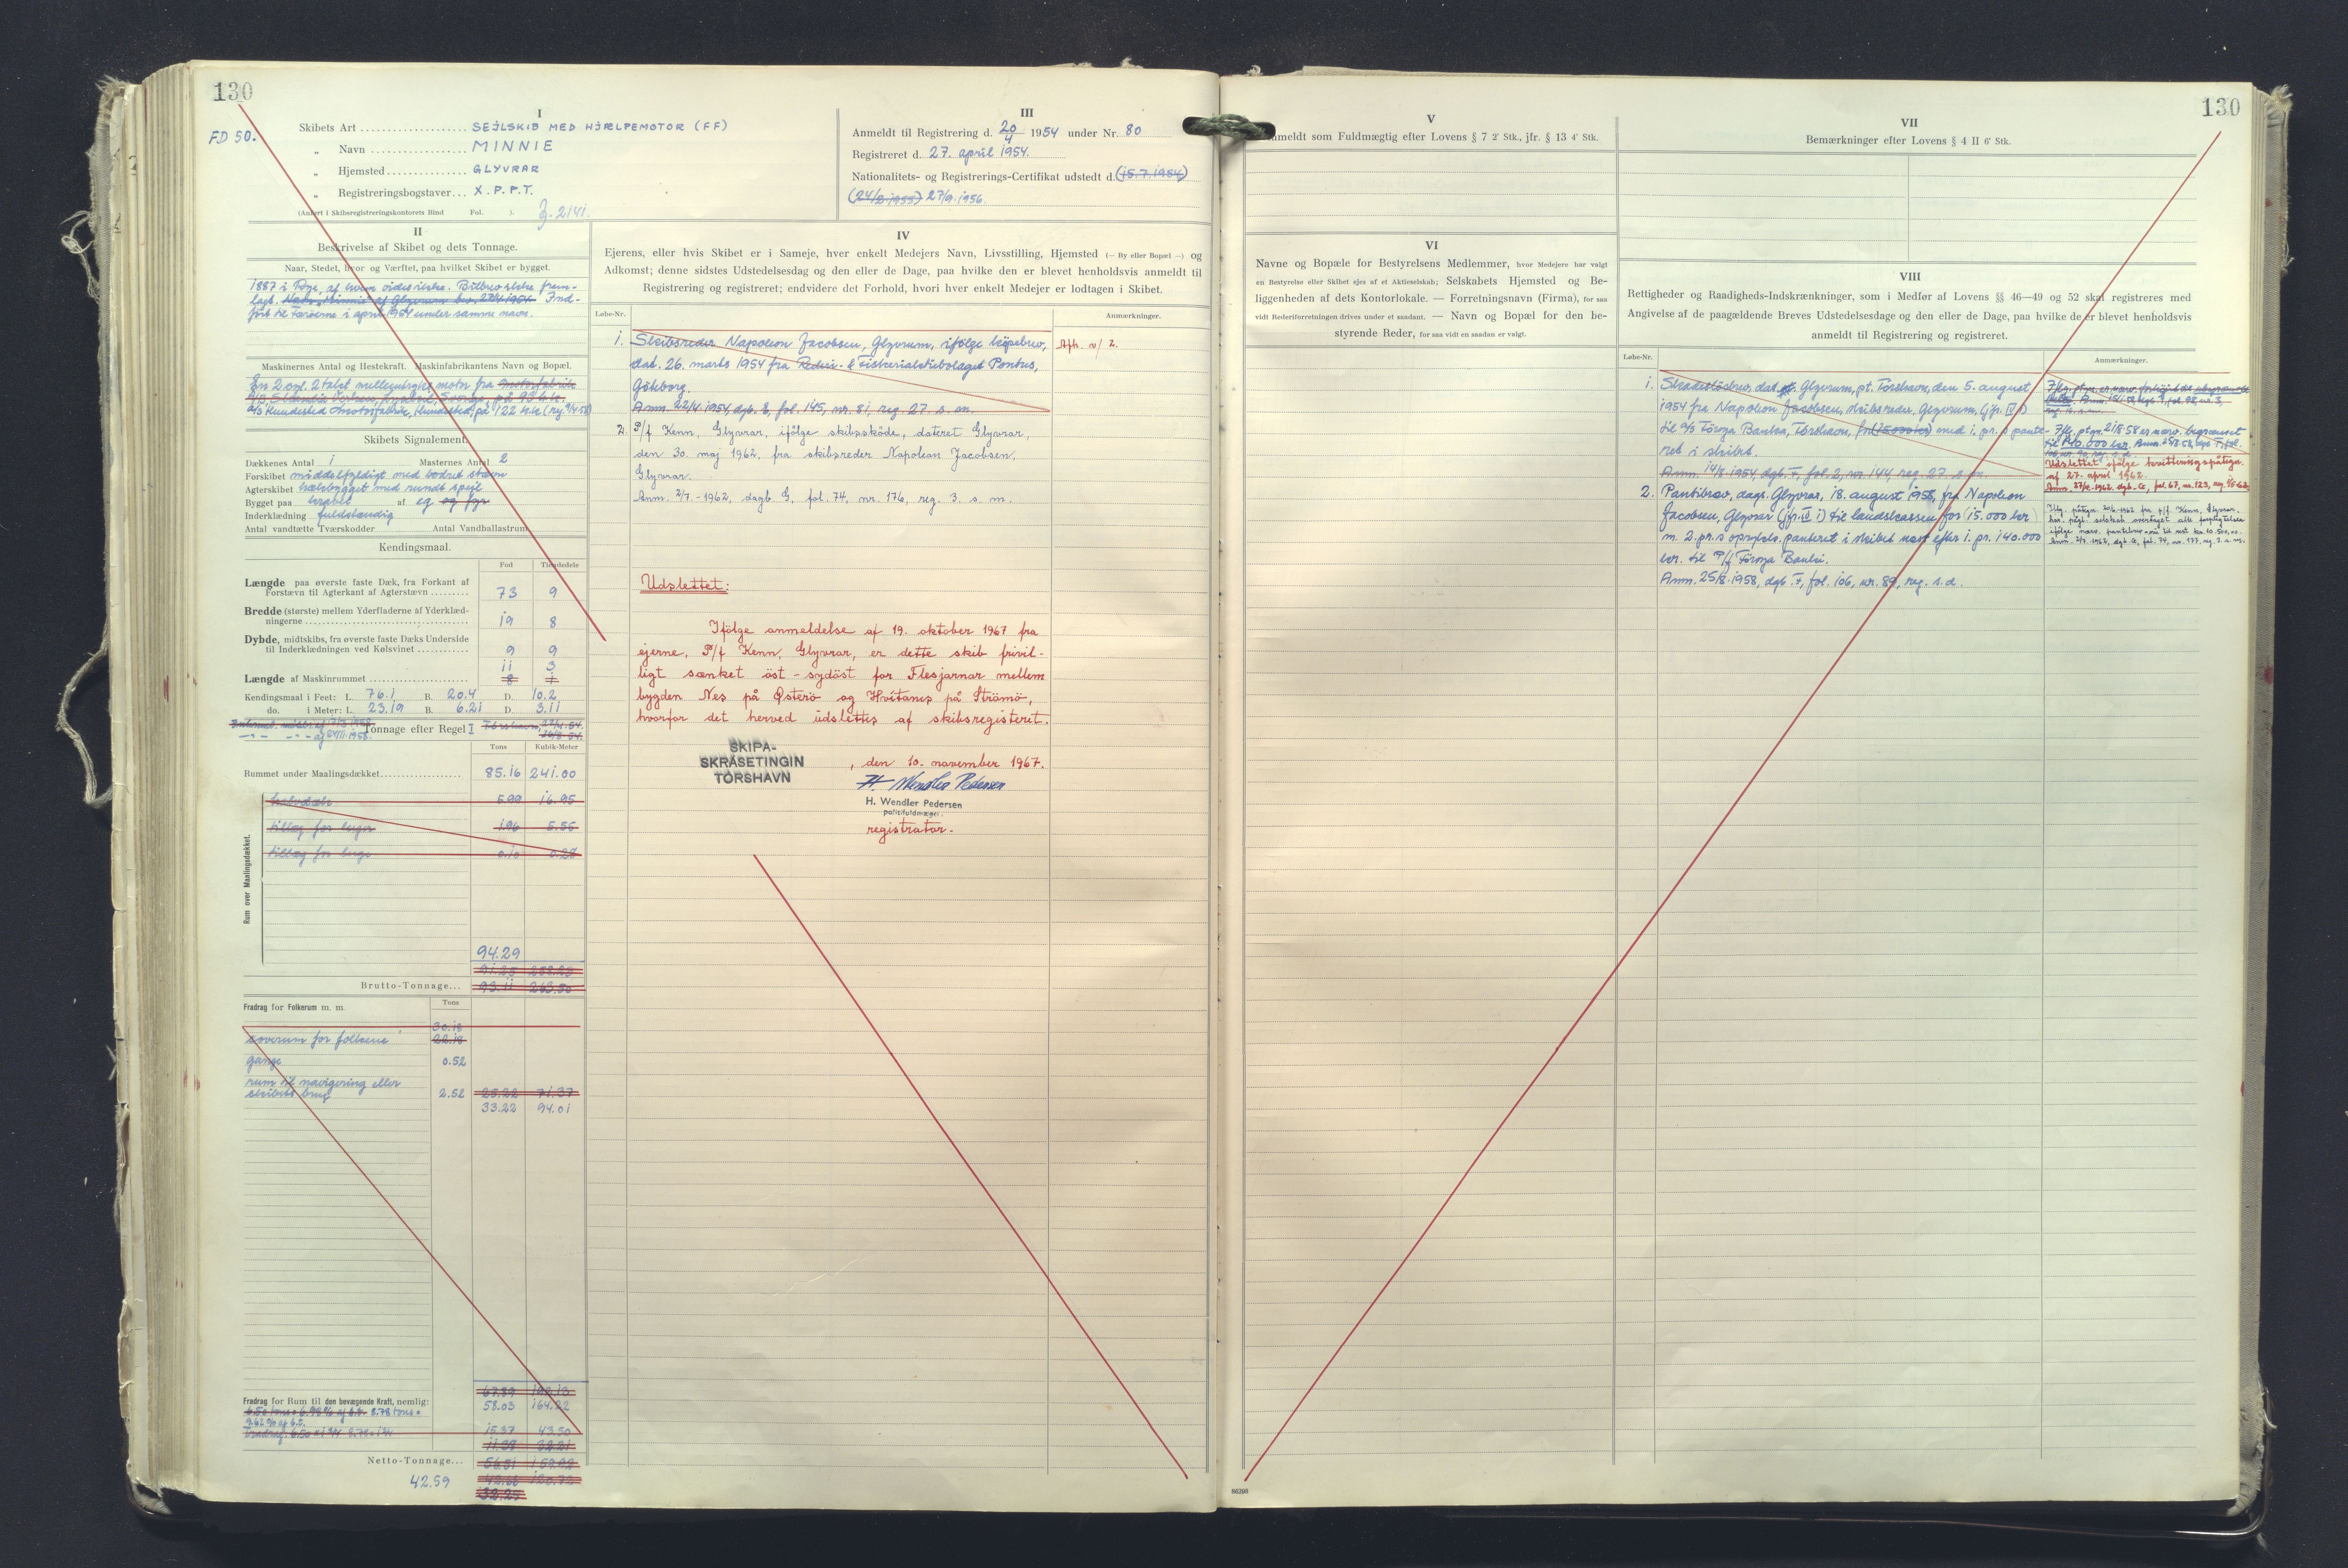 130
FD 50.
I
Skibets Art SEJLSKIB MED HJÆLPEMOTOR (FF)
„ Navn MINNIE
„ Hjemsted GLYVRAR
„ Registreringsbogstaver X.P.P.T.
(Anført i Skibsregistreringskontorets Bind Fol. ).
III
Anmeldt til Registrering d. 20/4 1954 under Nr. 80
Registreret d. 27. april 1954.
Nationalitets- og Registrerings-Certifikat udstedt d. (15.7.1954)
(24/2 1955) 27/9.1956.
II
Beskrivelse af Skibet og dets Tonnage.
Naar, Stedet, hvor og Værftet, paa hvilket Skibet er bygget.
lagt. Ind-
ført til Færöerne i april 1954 under samme navn.
Maskinernes Antal og Hestekraft. Maskinfabrikantens Navn og Bopæl.
En 2 cyl. 2 takt motor fra motorfabrik
a/s Hundested Motorfabrik, Hundested, på 122 h.k.
Skibets Signalement.
Dækkenes Antal 1 Masternes Antal 2
Forskibet middelfyldigt med bødret stævn
Agterskibet hælbygget med rundt spejl
Bygget paa kravel af eg og fyr
Inderklædning fuldstændig
Antal vandtætte Tværskodder Antal Vandballastrum
Kendingsmaal.
Fod Tiendedele
Længde paa øverste faste Dæk, fra Forkant af
Forstævn til Agterkant af Agterstævn 73 9
Bredde (største) mellem Yderfladerne af Yderklæd-
ningerne 19 8
Dybde, midtskibs, fra øverste faste Dæks Underside
til Inderklædningen ved Kølsvinet 9 9
11 3
Længde af Maskinrummet
Kendingsmaal i Feet: L. 76.1 B. 20.4 D. 10.2
do. i Meter: L. 23.19 B. 6.21 D. 3.11
Tonnage efter Regel I
Tons Kubik-Meter
Rummet under Maalingsdækket 85.16 241.00
Rum over Maalingsdækket.
halvdæk 5.99 16.95
tillæg for luger 1.96 5.55
tillæg for luge 0.10 0.28
94.29
91.25 258.23
Brutto-Tonnage... 93.11 263.50
Fradrag for Folkerum m. m. Tons
30.18
soverum for folkene 22.18
gange 0.52
rum til navigering eller
skibets brug 2.52 25.22 71.37
33.22 94.01
67.89 192.13
Fradrag for Rum til den bevægende Kraft, nemlig: 58.03 164.22
15.37 43.50
Netto-Tonnage...
42.59
IV
Ejerens, eller hvis Skibet er i Sameje, hver enkelt Medejers Navn, Livsstilling, Hjemsted (— By eller Bopæl —) og
Adkomst; denne sidstes Udstedelsesdag og den eller de Dage, paa hvilke den er blevet henholdsvis anmeldt til
Registrering og registreret; endvidere det Forhold, hvori hver enkelt Medejer er lodtagen i Skibet.
Løbe-Nr. Anmærkninger.
1. Skibsreder Napoleon Jacobsen, Glyvrum, ifølge köpebrev, Aph. v/ 2.
dat. 26. marts 1954 fra Rederi- & Fiskerialskibolaget Pontus,
Göteborg.
Anm. 22/4 1954, dgb. E, fol. 145, nr. 81, reg. 27. s. m.
2. P/f Kenn, Glyvrar, ifölge skibsskøde, dateret Glyvrar,
den 30. maj 1962, fra skibsreder Napolean Jacobsen,
Glyvrar.
Anm. 2/7.-1962, dagb G. fol. 74, nr. 176, reg. 3. s. m.
Udslettet:
Ifølge anmeldelse af 19. oktober 1967 fra
ejerne, P/f Kenn, Glyvrar, er dette skib frivil-
ligt sænket öst-sydöst for Flesjarnar mellem
bygden Nes på Østerö og Hvitanes på Strömö,
hvorfor det herved udslettes af skibsregisteret.
SKIPA-
SKRÁSETINGIN
TÓRSHAVN
, den 10. november 1967.
H. Wendler Pedersen
H. Wendler Pedersen
politifuldmægt.
registrator.
130
V
Anmeldt som Fuldmægtig efter Lovens § 7 2° Stk., jfr. § 13 4° Stk.
VI
Navne og Bopæle for Bestyrelsens Medlemmer, hvor Medejere har valgt
en Bestyrelse eller Skibet ejes af et Aktieselskab; Selskabets Hjemsted og Be-
liggenheden af dets Kontorlokale. — Forretningsnavn (Firma), for saa
vidt Rederiforretningen drives under et saadant. — Navn og Bopæl for den be-
styrende Reder, for saa vidt en saadan er valgt.
VII
Bemærkninger efter Lovens § 4 II 6° Stk.
VIII
Rettigheder og Raadigheds-Indskrænkninger, som i Medfør af Lovens §§ 46—49 og 52 skal registreres med
Angivelse af de paagældende Breves Udstedelsesdag og den eller de Dage, paa hvilke de er blevet henholdsvis
anmeldt til Registrering og registreret.
Løbe-Nr. Anmærkninger.
1. Skadeslösbrev, dat. Glyvrum, pt. Tórshavn, den 5. august
1954 fra Napoleon Jacobsen, skibsreder, Glyvrum, (jfr. IV 1)
til a/s Föroya Banka, Tórshavn, for (15.000 kr) med 1. pr. s pante-
ret i skibet.
Anm. 14/8 1954 dgb. F, fol. 2, nr. 144, reg. 27. s. m.
Udslettet ifølge kvitteringspåtegn.
af 27. april 1962.
2. Pantibræv, dags. Glyvrar, 18. august 1958, fra Napoleon
Jacobsen, Glyvrar (jfr. IV 1) til landskassan for (15.000 kr)
m. 2. pr. s oprykn. panteret i skibet næst efter 1. pr. 140.000
kr. til P/f Föroya Banki.
Anm. 25/8. 1958, dgb. F, fol. 106, nr. 89, reg. s.d.
86298